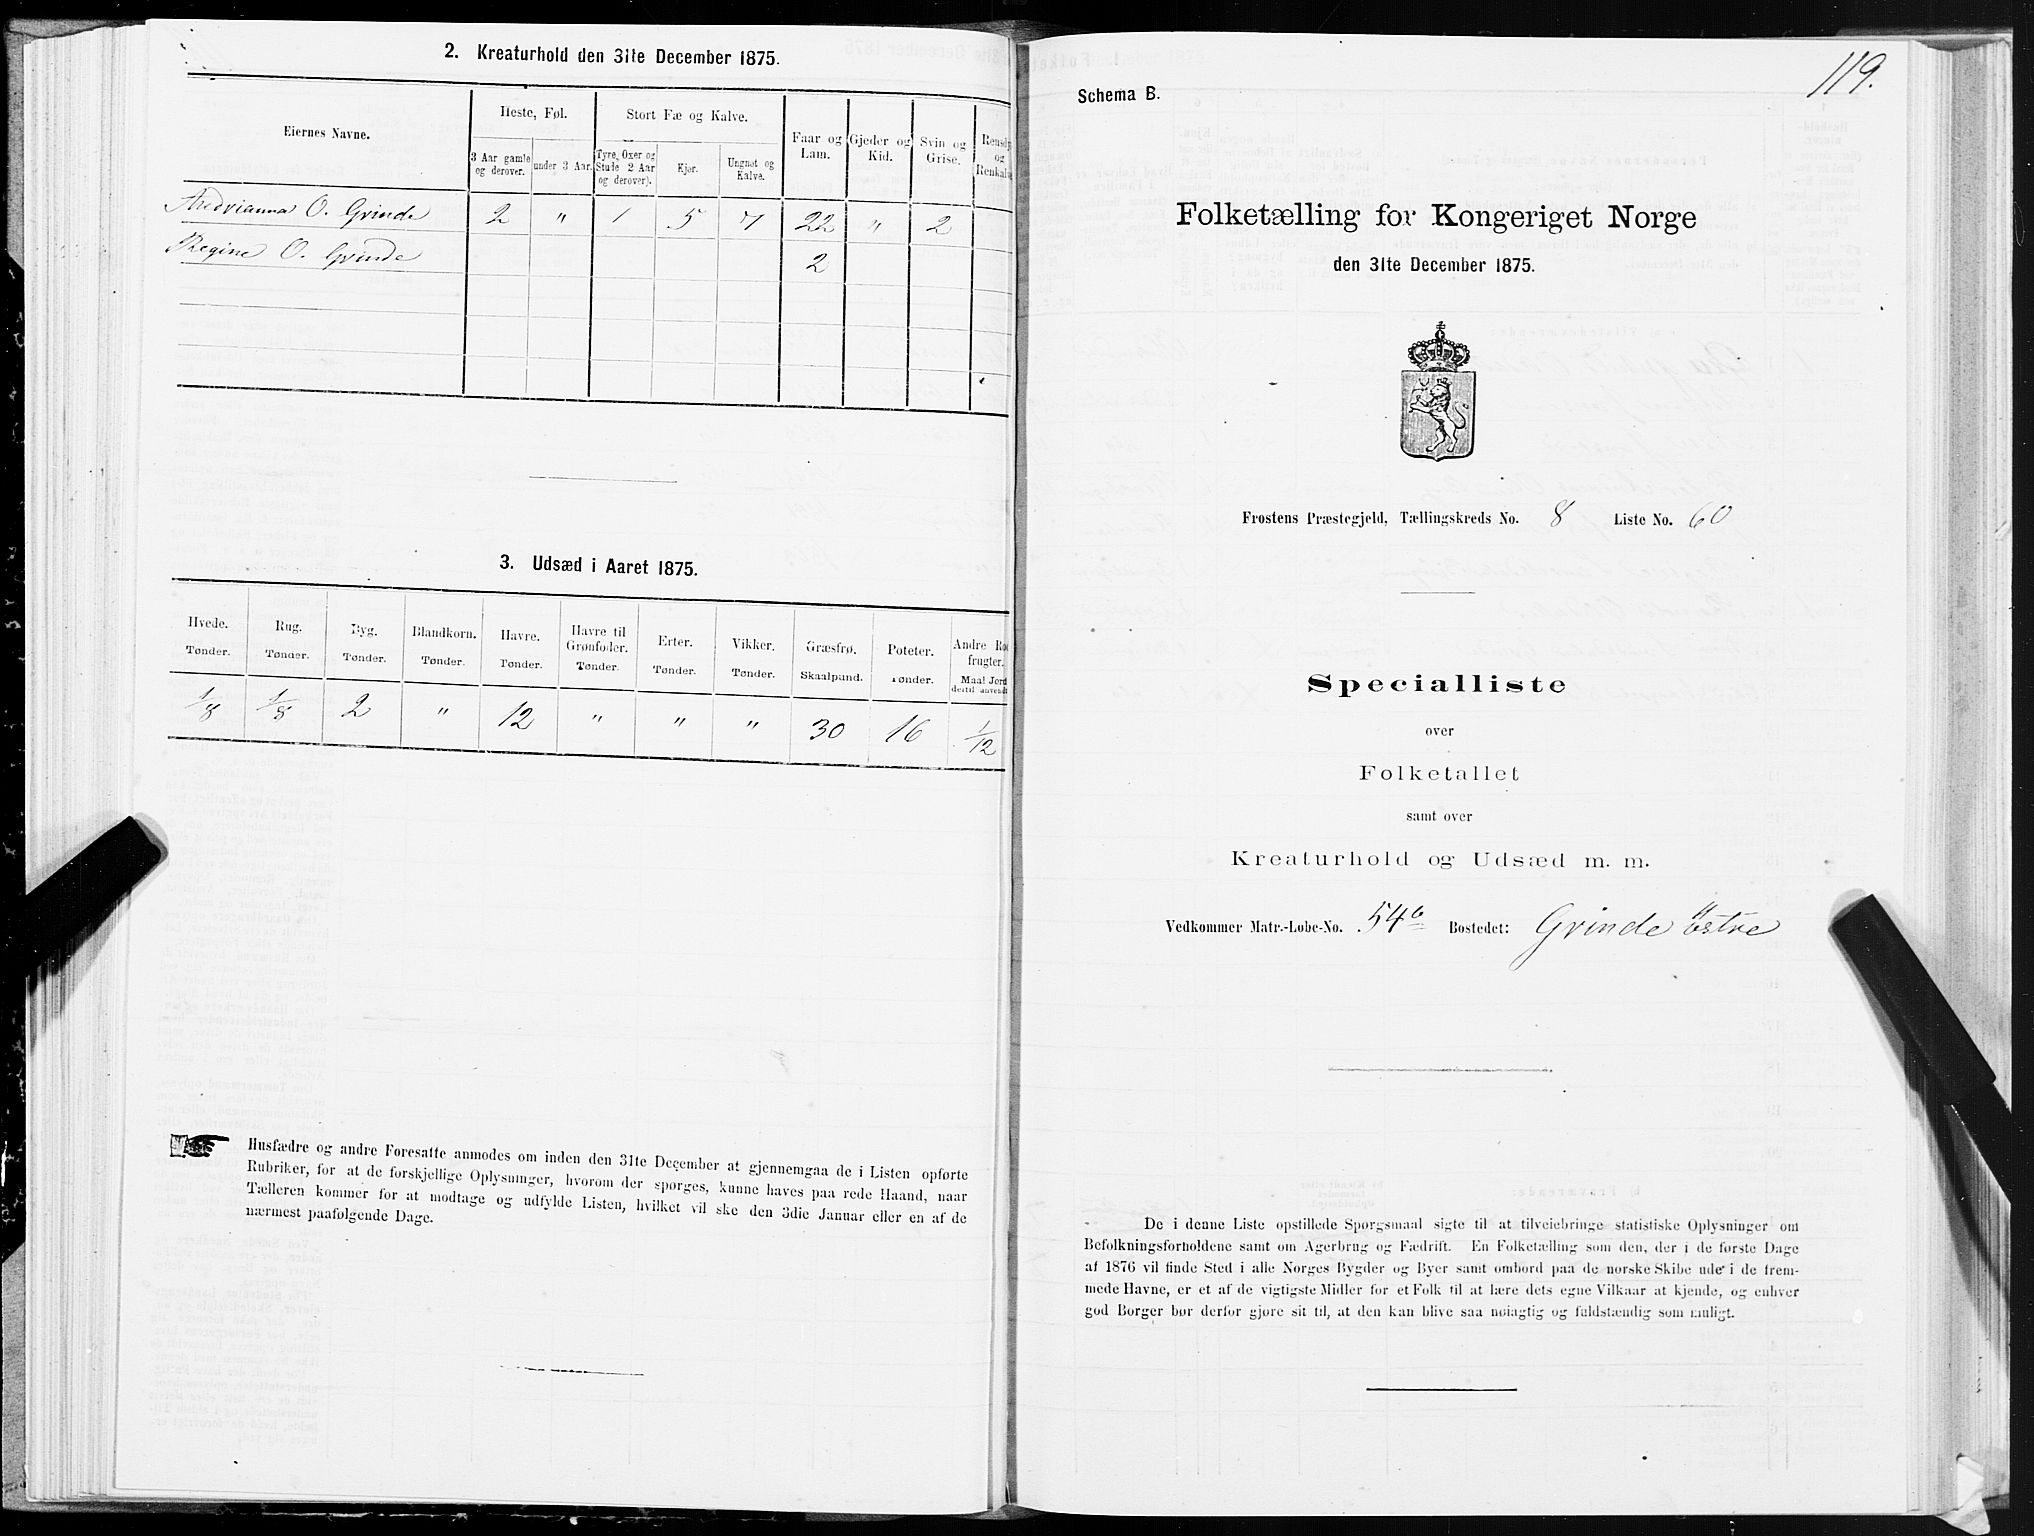 2. Kreaturhold den 31te December 1875.
Eiernes Navne.
Heste, Føl.
Stort Fæ og Kalve.
3 Aar gamle og derover.
under 3 Aar.
Tyre, Oxer og Stude 2 Aar og derover).
Kjør.
Ungnøt og Kalve.
Faar og Lam.
Gjeder og Kid.
Svin og Grise.
Rensdy
og
Renkalv
O. Grinde 2 " 1 5 7 22 " 2
Regine O. Grinde 2
3. Udsæd i Aaret 1875.
Hvede. Rug. Byg. Blandkorn. Havre. Havre til Grønfoder. Erter. Vikker. Græsfrø. Poteter. Andre Rod frugter.
Tønder. Tønder. Tønder. Tønder. Tønder. Tønder. Tønder. Tønder. Skaalpund. Tønder. Maal Jord dertil anvendt
1/8 1/8 2 " 12 " " " 30 16 1/12
Husfædre og andre Foresatte anmodes om inden den 31te December at gjennemgaa de i Listen opførte
Rubriker, for at de forskjellige Oplysninger, hvorom der spørges, kunne haves paa rede Haand, naar
Tælleren kommer for at modtage og udfylde Listen, hvilket vil ske den 3die Januar eller en af de
nærmest paafølgende Dage.
119.
Schema B.
Folketælling for Kongeriget Norge
den 31te December 1875.
Frostens Præstegjeld, Tællingskreds No. 8 Liste No. 60
Specialliste
over
Folketallet
samt over
Kreaturhold og Udsæd m. m.
Vedkommer Matr.-Løbe-No. 54b Bostedet: Grinde östre
De i denne Liste opstillede Spørgsmaal sigte til at tilveiebringe statistiske Oplysninger om
Befolkningsforholdene samt om Agerbrug og Fædrift. En Folketælling som den, der i de første Dage
af 1876 vil finde Sted i alle Norges Bygder og Byer samt ombord paa de norske Skibe ude i de frem-
mede Havne, er et af de vigtigste Midler for et Folk til at lære dets egne Vilkaar at kjende, og enhver
god Borger bør derfor gjøre sit til, at den kan blive saa nøiagtig og fuldstændig som muligt.